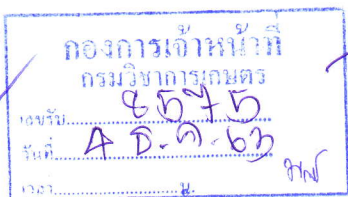 กองการเจ้าหน้าที่
กรมวิชาการเกษตร
เลขรับ 8575
วันที่ 4 ธ.ค. 63
เวลา น.